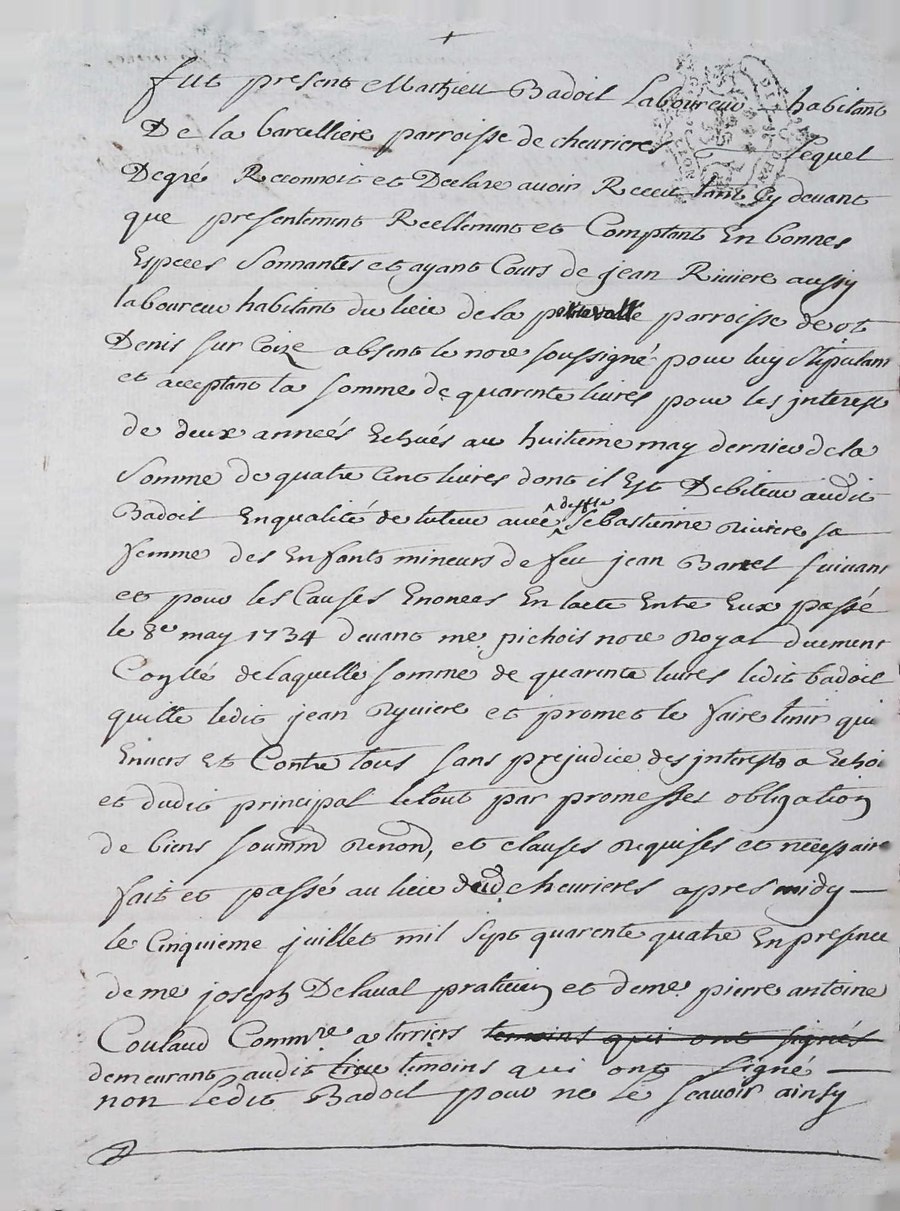 fut present Mathieu Badoil Laboureur habitant
De la barcelliere parroisse de chevrieres Lequel
Degré Reconnoit et Declare avoir Receu tant Cy devant
que presentement Reellement et Comptant En bonnes
Especes Sonnantes et ayant Cours de jean Riviere aussy
laboureur habitant du lieu de la parroisse de st
Denis sur Coize absent le nore soussigné pour luy stipulant
et acceptant la somme de quarente livres pour les interest
de deux années Echués au huitieme may dernier de la
Somme de quatre Cent livres dont il Est Debiteur audit
Badoil Enqualité de tuteur avec Sebastienne riviere sa
femme des Enfants mineurs de feu jean suivant
et pour les Causes Enoncés En lacte Entre Eux passé
le 8e may 1734 devant me pichois nore Royal duement
Conllé de laquelle somme de quarente livres ledit badoil
quitte ledit jean Ryviere et promet le faire tenir qui
Envers et Contre tous sans prejudice des interests a Echoi
et dudit principal le tout par promesses obligation
de biens soumm renon, et clauses requises et necessaire
fait et passé au lieu dud chevrieres apres midy
le Cinquieme juillet mil sept quarente quatre En presence
de me joseph Delaval praticien et de me pierre antoine
Coulaud Commre a terriers temoins qui ont signés
demeurant audit lieu temoins qui ont signé
non ledit Badoil pour ne le scavoir ainsy